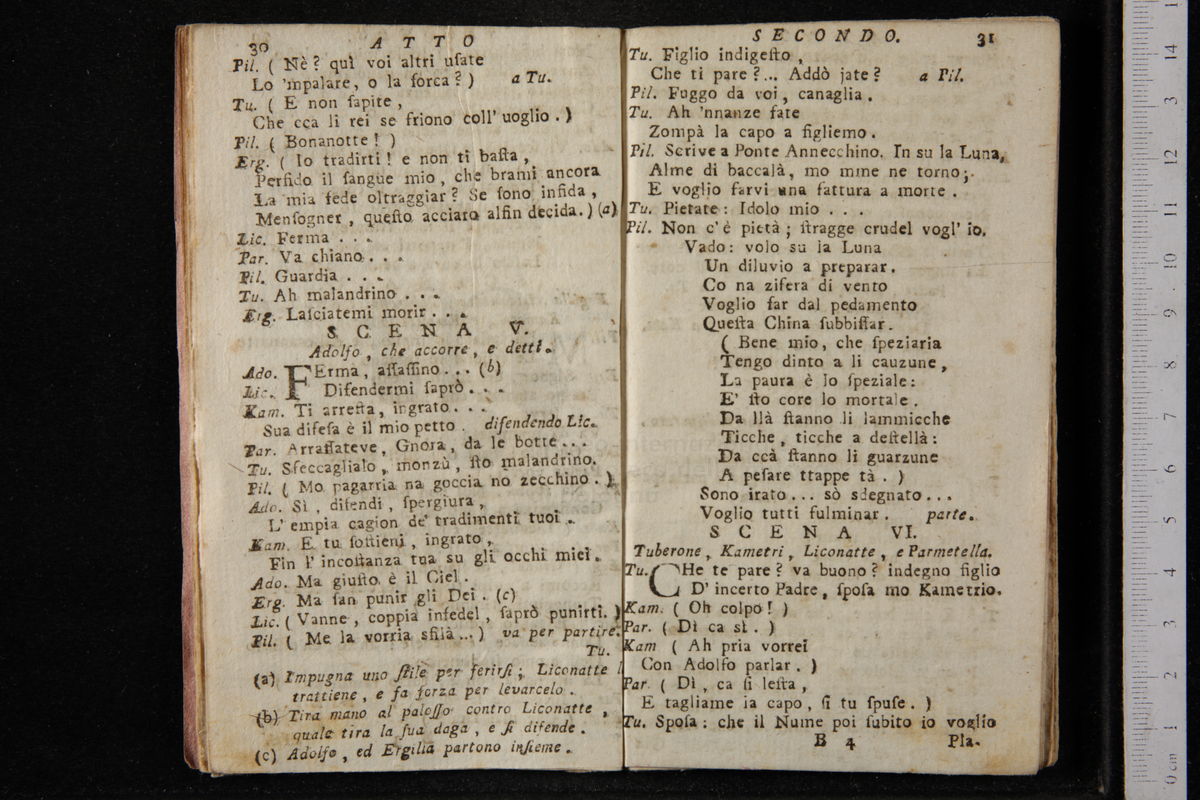 30 ATTO
Pil. ( Nè? quì voi altri uſate
Lo 'mpalare, o la forca? ) a Tu.
Tu. ( E non ſapite,
Che cca li rei se friono coll' uoglio. )
Pil. ( Bonanotte! )
Erg. ( Io tradirti! e non ti baſta,
Perfido il ſangue mio, che brami ancora
La mia fede oltraggiar? Se ſono infida,
Menſogner, queſto acciaro alfin decida. ) (a)
Lic. Ferma . . .
Par. Va chiano . . .
Pil. Guardia . . .
Tu. Ah malandrino . . .
Erg. Laſciatemi morir . . .
SCENA V.
Adolfo, che accorre, e detti.
Ado. FErma, aſſaſſino . . . (b)
Lic. Difendermi ſaprò . . .
Kam. Ti arreſta, ingrato . . .
Sua difeſa è il mio petto. difendendo Lic.
Par. Arraſſateve, Gnora, da le botte . . .
Tu. Sfeccaglialo, monzù, ſto malandrino.
Pil. ( Mo pagarria na goccia no zecchino. )
Ado. Sì, difendi, ſpergiura,
L' empia cagion de' tradimenti tuoi.
Kam. E tu ſoſtieni, ingrato,
Fin l' incoſtanza tua su gli occhi miei.
Ado. Ma giuſto è il Ciel.
Erg. Ma ſan punir gli Dei. (c)
Lic. ( Vanne, coppia infedel, ſaprò punirti. )
Pil. ( Me la vorria sfilà ... ) va per partire.
Tu.
(a) Impugna uno ſtile per ferirſi; Liconatte l
trattiene, e fa forza per levarcelo.
(b) Tira mano al paloſſo contro Liconatte,
quale tira la ſua daga, e ſi difende.
(c) Adolfo, ed Ergilia partono inſieme.
SECONDO. 31
Tu. Figlio indigeſto,
Che ti pare?... Addò jate? a Pil.
Pil. Fuggo da voi, canaglia.
Tu. Ah 'nnanze fate
Zompà la capo a figliemo.
Pil. Scrive a Ponte Annecchino. In su la Luna,
Alme di baccalà, mo mme ne torno;
E voglio farvi una fattura a morte.
Tu. Pietate: Idolo mio . . .
Pil. Non c'è pietà; ſtragge crudel vogl' io.
Vado: volo su la Luna
Un diluvio a preparar.
Co na zifera di vento
Voglio far dal pedamento
Queſta China ſubbiſſar.
( Bene mio, che ſpeziaria
Tengo dinto a li cauzune,
La paura è lo ſpeziale:
E' ſto core lo mortale.
Da llà ſtanno li lammicche
Ticche, ticche a deſtellà:
Da ccà ſtanno li guarzune
A peſare ttappe tà. )
Sono irato... sò sdegnato...
Voglio tutti fulminar. parte.
SCENA VI.
Tuberone, Kametri, Liconatte, e Parmetella.
Tu. CHe te pare? va buono? indegno figlio
D' incerto Padre, ſpoſa mo Kametrio.
Kam. ( Oh colpo! )
Par. ( Dì ca sì. )
Kam ( Ah pria vorrei
Con Adolfo parlar. )
Par. ( Dì, ca ſi leſta,
E tagliame la capo, ſi tu ſpuſe. )
Tu. Spoſa: che il Nume poi ſubito io voglio
B 4 Pla-